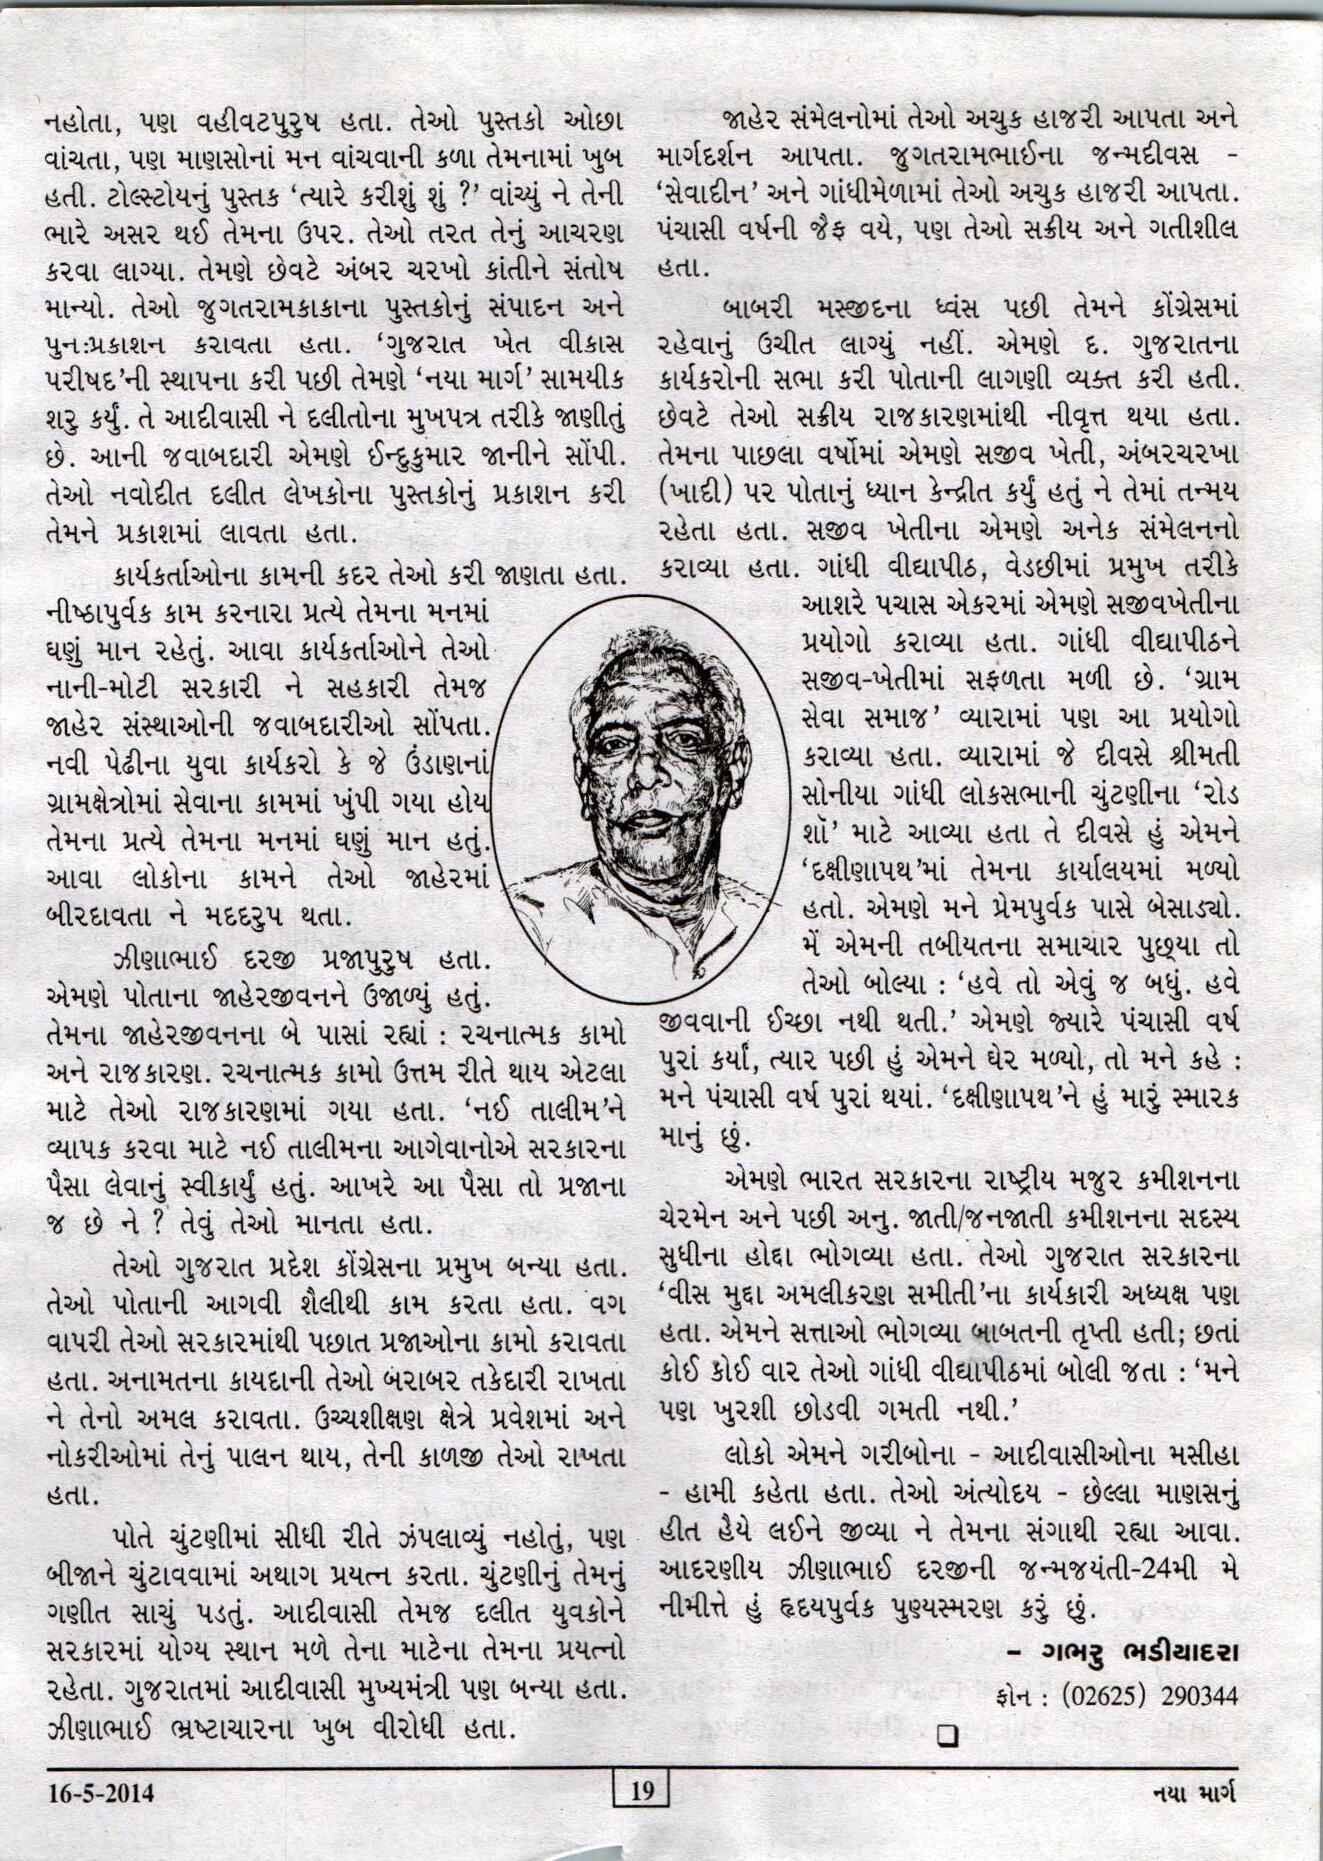 નહોતા, પણ વહીવટપુરુષ હતા. તેઓ પુસ્તકો ઓછા
વાંચતા, પણ માણસોનાં મન વાંચવાની કળા તેમનામાં ખુબ
હતી. ટોલ્સ્ટોયનું પુસ્તક ‘ત્યારે કરીશું શું ?’ વાંચ્યું ને તેની
ભારે અસર થઈ તેમના ઉપર. તેઓ તરત તેનું આચરણ
કરવા લાગ્યા. તેમણે છેવટે અંબર ચરખો કાંતીને સંતોષ
માન્યો. તેઓ જુગતરામકાકાના પુસ્તકોનું સંપાદન અને
પુનઃપ્રકાશન કરાવતા હતા. ‘ગુજરાત ખેત વીકાસ
પરીષદ’ની સ્થાપના કરી પછી તેમણે ‘નયા માર્ગ’ સામયીક
શરુ કર્યું. તે આદીવાસી ને દલીતોના મુખપત્ર તરીકે જાણીતું
છે. આની જવાબદારી એમણે ઈન્દુકુમાર જાનીને સોંપી.
તેઓ નવોદીત દલીત લેખકોના પુસ્તકોનું પ્રકાશન કરી
તેમને પ્રકાશમાં લાવતા હતા.
કાર્યકર્તાઓના કામની કદર તેઓ કરી જાણતા હતા.
નીષ્ઠાપુર્વક કામ કરનારા પ્રત્યે તેમના મનમાં
ઘણું માન રહેતું. આવા કાર્યકર્તાઓને તેઓ
નાની-મોટી સરકારી ને સહકારી તેમજ
જાહેર સંસ્થાઓની જવાબદારીઓ સોંપતા.
નવી પેઢીના યુવા કાર્યકરો કે જે ઉંડાણનાં
ગ્રામક્ષેત્રોમાં સેવાના કામમાં ખુંપી ગયા હોય
તેમના પ્રત્યે તેમના મનમાં ઘણું માન હતું.
આવા લોકોના કામને તેઓ જાહેરમાં
બીરદાવતા ને મદદરુપ થતા.
ઝીણાભાઈ દરજી પ્રજાપુરુષ હતા.
એમણે પોતાના જાહેરજીવનને ઉજાળ્યું હતું.
તેમના જાહેરજીવનના બે પાસાં રહ્યાં : રચનાત્મક કામો
અને રાજકારણ. રચનાત્મક કામો ઉત્તમ રીતે થાય એટલા
માટે તેઓ રાજકારણમાં ગયા હતા. ‘નઈ તાલીમ’ને
વ્યાપક કરવા માટે નઈ તાલીમના આગેવાનોએ સરકારના
પૈસા લેવાનું સ્વીકાર્યું હતું. આખરે આ પૈસા તો પ્રજાના
જ છે ને ? તેવું તેઓ માનતા હતા.
તેઓ ગુજરાત પ્રદેશ કોંગ્રેસના પ્રમુખ બન્યા હતા.
તેઓ પોતાની આગવી શૈલીથી કામ કરતા હતા. વગ
વાપરી તેઓ સરકારમાંથી પછાત પ્રજાઓના કામો કરાવતા
હતા. અનામતના કાયદાની તેઓ બરાબર તકેદારી રાખતા
ને તેનો અમલ કરાવતા. ઉચ્ચશીક્ષણ ક્ષેત્રે પ્રવેશમાં અને
નોકરીઓમાં તેનું પાલન થાય, તેની કાળજી તેઓ રાખતા
હતા.
પોતે ચુંટણીમાં સીધી રીતે ઝંપલાવ્યું નહોતું, પણ
બીજાને ચુંટાવવામાં અથાગ પ્રયત્ન કરતા. ચુંટણીનું તેમનું
ગણીત સાચું પડતું. આદીવાસી તેમજ દલીત યુવકોને
સરકારમાં યોગ્ય સ્થાન મળે તેના માટેના તેમના પ્રયત્નો
રહેતા. ગુજરાતમાં આદીવાસી મુખ્યમંત્રી પણ બન્યા હતા.
ઝીણાભાઈ ભ્રષ્ટાચારના ખુબ વીરોધી હતા.
જાહેર સંમેલનોમાં તેઓ અચુક હાજરી આપતા અને
માર્ગદર્શન આપતા. જુગતરામભાઈના જન્મદીવસ -
‘સેવાદીન’ અને ગાંધીમેળામાં તેઓ અચુક હાજરી આપતા.
પંચાસી વર્ષની જૈફ વયે, પણ તેઓ સક્રીય અને ગતીશીલ
હતા.
બાબરી મસ્જીદના ધ્વંસ પછી તેમને કોંગ્રેસમાં
રહેવાનું ઉચીત લાગ્યું નહીં. એમણે દ. ગુજરાતના
કાર્યકરોની સભા કરી પોતાની લાગણી વ્યક્ત કરી હતી.
છેવટે તેઓ સક્રીય રાજકારણમાંથી નીવૃત્ત થયા હતા.
તેમના પાછલા વર્ષોમાં એમણે સજીવ ખેતી, અંબરચરખા
(ખાદી) પર પોતાનું ધ્યાન કેન્દ્રીત કર્યું હતું ને તેમાં તન્મય
રહેતા હતા. સજીવ ખેતીના એમણે અનેક સંમેલનનો
કરાવ્યા હતા. ગાંધી વીદ્યાપીઠ, વેડછીમાં પ્રમુખ તરીકે
આશરે પચાસ એકરમાં એમણે સજીવખેતીના
પ્રયોગો કરાવ્યા હતા. ગાંધી વીદ્યાપીઠને
સજીવ-ખેતીમાં સફળતા મળી છે. ‘ગ્રામ
સેવા સમાજ’ વ્યારામાં પણ આ પ્રયોગો
કરાવ્યા હતા. વ્યારામાં જે દીવસે શ્રીમતી
સોનીયા ગાંધી લોકસભાની ચુંટણીના ‘રોડ
શૉ’ માટે આવ્યા હતા તે દીવસે હું એમને
‘દક્ષીણાપથ’માં તેમના કાર્યાલયમાં મળ્યો
હતો. એમણે મને પ્રેમપુર્વક પાસે બેસાડ્યો.
મેં એમની તબીયતના સમાચાર પુછ્યા તો
તેઓ બોલ્યા : ‘હવે તો એવું જ બધું. હવે
જીવવાની ઈચ્છા નથી થતી.’ એમણે જ્યારે પંચાસી વર્ષ
પુરાં કર્યાં, ત્યાર પછી હું એમને ઘેર મળ્યો, તો મને કહે :
મને પંચાસી વર્ષ પુરાં થયાં. ‘દક્ષીણાપથ’ને હું મારું સ્મારક
માનું છું.
એમણે ભારત સરકારના રાષ્ટ્રીય મજુર કમીશનના
ચેરમેન અને પછી અનુ. જાતી/જનજાતી કમીશનના સદસ્ય
સુધીના હોદ્દા ભોગવ્યા હતા. તેઓ ગુજરાત સરકારના
‘વીસ મુદ્દા અમલીકરણ સમીતી’ના કાર્યકારી અધ્યક્ષ પણ
હતા. એમને સત્તાઓ ભોગવ્યા બાબતની તૃપ્તી હતી; છતાં
કોઈ કોઈ વાર તેઓ ગાંધી વીદ્યાપીઠમાં બોલી જતા : ‘મને
પણ ખુરશી છોડવી ગમતી નથી.’
લોકો એમને ગરીબોના - આદીવાસીઓના મસીહા
- હામી કહેતા હતા. તેઓ અંત્યોદય - છેલ્લા માણસનું
હીત હૈયે લઈને જીવ્યા ને તેમના સંગાથી રહ્યા આવા.
આદરણીય ઝીણાભાઈ દરજીની જન્મજયંતી-24મી મે
નીમીત્તે હું હૃદયપુર્વક પુણ્યસ્મરણ કરું છું.
– ગભરુ ભડીયાદરા
ફોન : (02625) 290344
16-5-2014
19
નયા માર્ગ